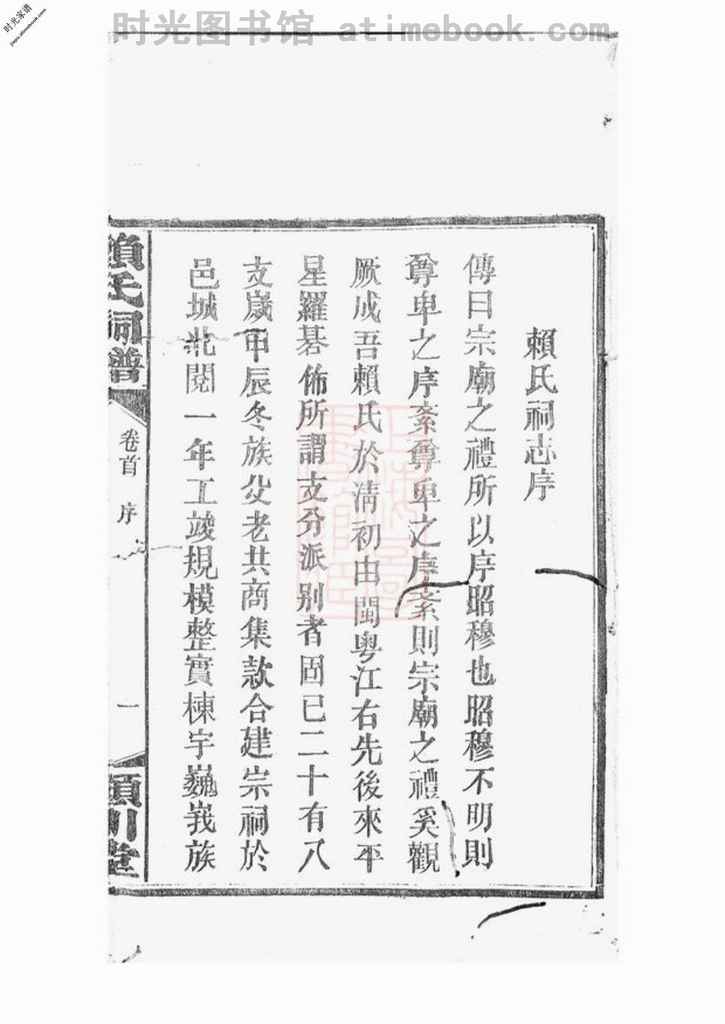 时光图书馆 atimebook.com
时光家谱
jiapu.atimebook.com
賴氏祠志序
傳曰宗廟之禮所以序昭穆也昭穆不明則
尊卑之序紊尊卑之序紊則宗廟之禮奚觀
厥成吾賴氏於清初由閩粤江右先後來平
星羅碁佈所謂支分派別者固已二十有八
支歲甲辰冬族父老共商集款合建宗祠於
邑城北閱一年工竣規模整實棟宇巍峩族
賴氏祠譜
卷首 序
一
潁川堂